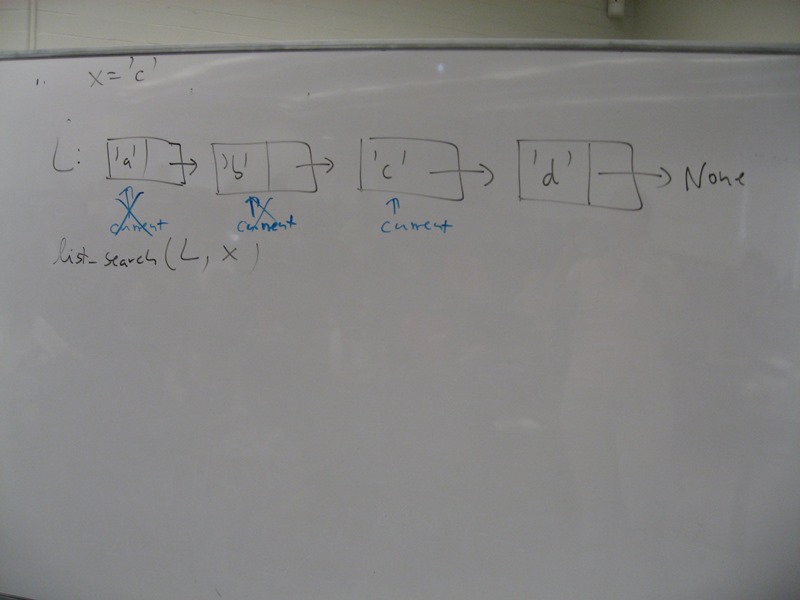 x = 'c'
L: 'a' 'b' 'c' 'd' None
current current current
list_search(L, x)